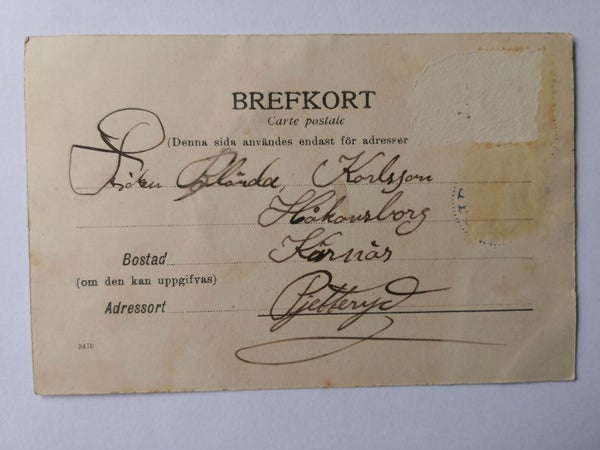 BREFKORT
Carte postale
(Denna sida användes endast för adresser
Fröken Blända Karlsson
Håkansborg
Bostad Kärnäs
(om den kan uppgifvas)
Adressort Pjetteryd
3470